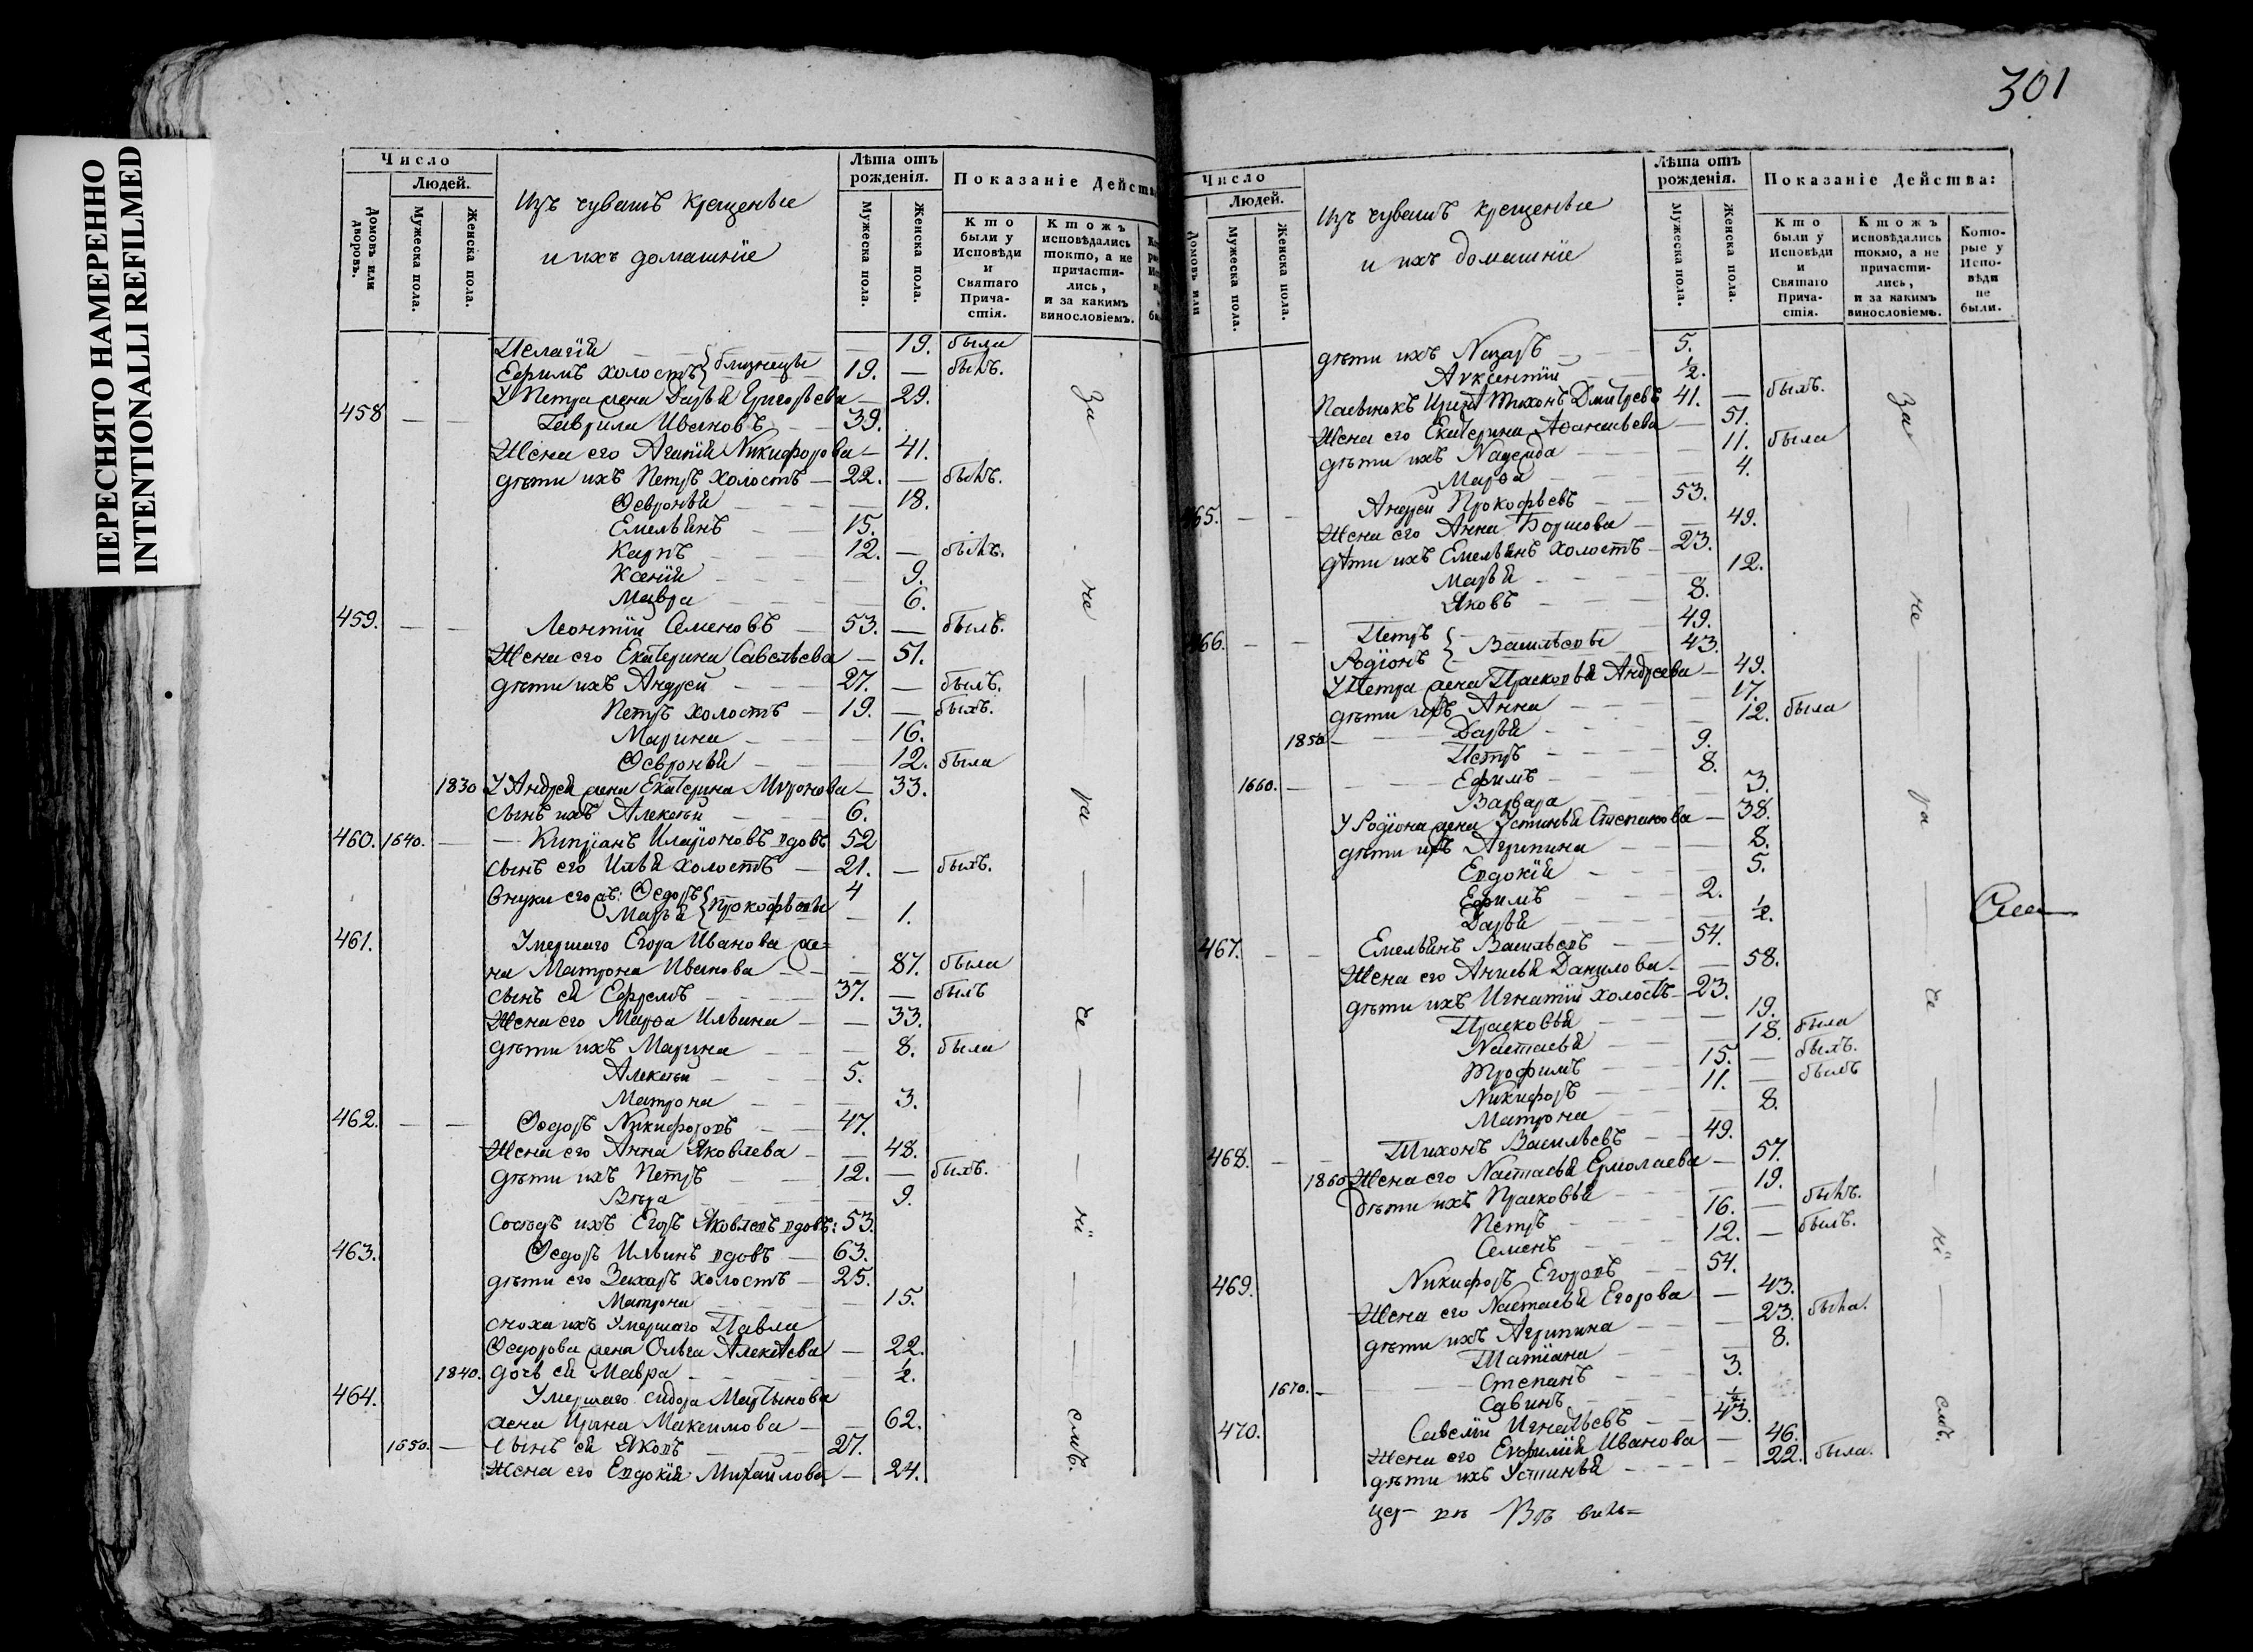 301
ПЕРЕСНЯТО НАМЕРЕННО
INTENTIONALLI REFILMED
Число
Людей.
Домовъ или дворовъ.
Мужеска пола.
Женска пола.
Изъ чувашъ крещеные
и ихъ домашніе
Лѣта отъ рожденія.
Мужеска пола.
Женска пола.
Показаніе Действ
Кто были у Исповѣди и Святаго Причастія.
Ктожъ исповѣдались токмо, а не причастились, и за какимъ винословіемъ.
Пелагія — 19. была
Ефимъ холостъ } близнецы 19. — былъ.
У Петра жена Дарья Григорьева — 29.
458 — — Гаврила Ивановъ 39.
Жена его Агапія Никифорова — 41.
дѣти ихъ Петръ холостъ — 22. — былъ.
Ѳевронья — 18.
Емельянъ 15.
Карпъ 12. — былъ.
Ксенія — 9.
Мавра — 6.
459. — — Леонтій Семеновъ — 53. — былъ.
Жена его Екатерина Савельева — 51.
дѣти ихъ Андрей 27. — былъ.
Петръ холостъ — 19. — былъ.
Марина — 16.
Ѳевронья — 12. была
1830 У Андрея жена Екатерина Миронова — 33.
сынъ ихъ Алексѣй 6.
460. 1640. — — Кипріанъ Иларіоновъ вдовъ 52
сынъ его Илья холостъ — 21. — былъ.
Внуки его: Ѳедоръ 4
Марья } Прокофьевы — 1.
461. Умершаго Егора Иванова же=
на Матрона Иванова — 87. была
сынъ ея Ефремъ 37. — былъ
Жена его Марѳа Ильина — 33.
дѣти ихъ Марина — 8. была
Алексѣй 5.
Матрона — 3.
462. — — Ѳедоръ Никифоровъ 47.
Жена его Анна Яковлева — 48.
дѣти ихъ Петръ 12. — былъ.
Вѣра — 9.
Сосѣдъ ихъ Егоръ Яковлевъ вдовъ: 53.
463. Ѳедоръ Ильинъ вдовъ — 63.
дѣти его Захаръ холостъ — 25.
Матрона — 15.
сноха ихъ Умершаго Павла
Ѳедорова жена Ольга Алексѣева — 22.
1840. дочь ея Мавра — ½.
464. Умершаго Сидора Мартынова
жена Ирина Максимова — 62.
1650. — сынъ ея Яковъ 27.
Жена его Евдокія Михайлова — 24.
За не ра че ні емъ.
Число
Людей.
Домовъ или
Мужеска пола.
Женска пола.
Изъ чувашъ крещеные
и ихъ домашніе
Лѣта отъ рожденія.
Мужеска пола.
Женска пола.
Показаніе Действа:
Кто были у Исповѣди и Святаго Причастія.
Ктожъ исповѣдались токмо, а не причастились, и за какимъ винословіемъ.
Которые у Исповѣди не были.
дѣти ихъ Назаръ 5.
Авксентій ½.
Тихонъ Дмитревъ 41. — былъ.
Жена его Екатерина Аѳанасьева — 51.
дѣти ихъ Надежда — 11. была
Марѳа — 4.
465. — — Андрей Прокофьевъ 53.
Жена его Анна Борисова — 49.
дѣти ихъ Емельянъ холостъ — 23.
Марья — 12.
Яковъ 8.
466. — — Петръ 49.
Родіонъ } Васильевы 43.
У Петра жена Прасковья Андреева — 49.
дѣти ихъ Анна — 17.
1850 — Дарья — 12. была
Петръ 9.
1660. — Ефимъ 8.
Варвара 3.
У Родіона жена Устинья Степанова — 38.
дѣти ихъ Агрипина — 8.
Евдокія — 5.
Ефимъ 2.
Дарья — ½.
467. — — Емельянъ Васильевъ 54.
Жена его Анисья Данилова — 58.
дѣти ихъ Игнатій холостъ — 23.
Прасковья — 19.
Настасья 18. была
Трофимъ 15. — былъ.
Никифоръ 11. — былъ
Матрона — 8.
468. — — Тихонъ Васильевъ 49.
1860 Жена его Настасья Ермолаева — 57.
дѣти ихъ Прасковья — 19.
Петръ 16. — былъ.
Семенъ 12. — былъ.
469. Никифоръ Егоровъ 54.
Жена его Настасья Егорова — 43.
дѣти ихъ Агрипина — 23. была.
Татіана — 8.
Степанъ 3.
1670. — Савинъ ½.
470. Савелій Игнатьевъ 43.
Жена его Евфимія Иванова — 46.
дѣти ихъ Устинья — 22. была.
За не ра че ні емъ.